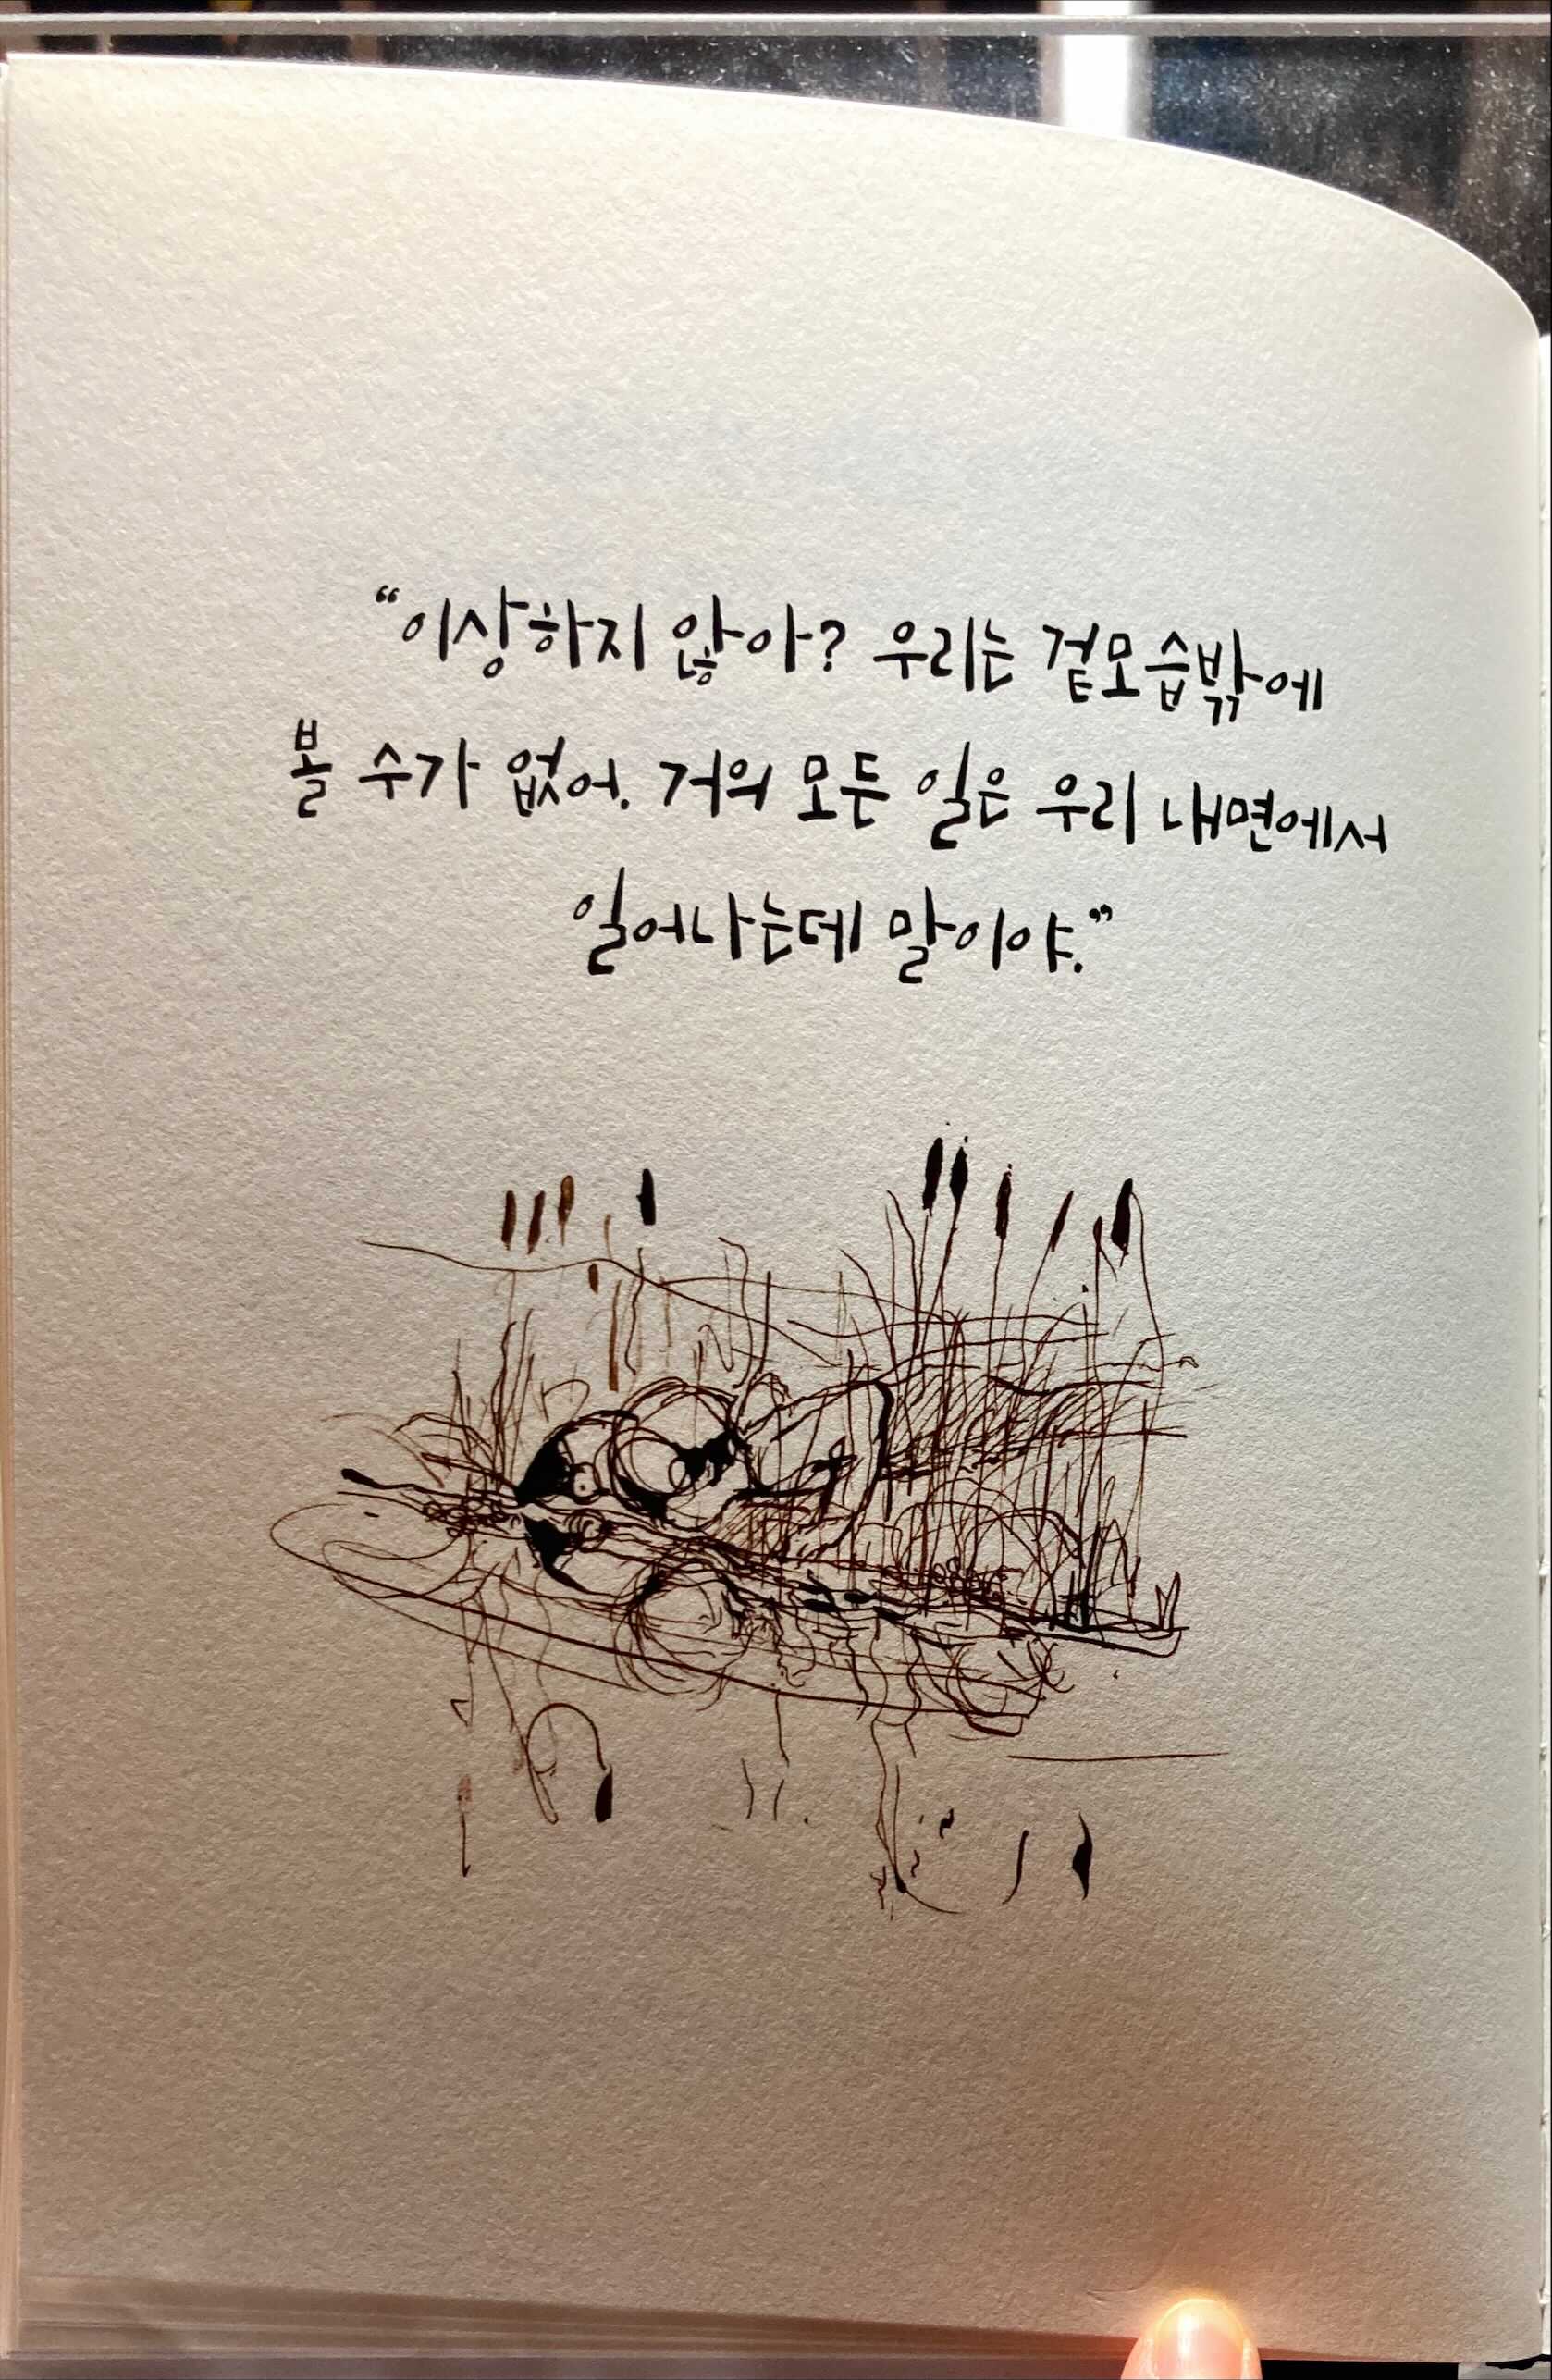 “이상하지 않아? 우리는 겉모습밖에
볼 수가 없어. 거의 모든 일은 우리 내면에서
일어나는데 말이야.”